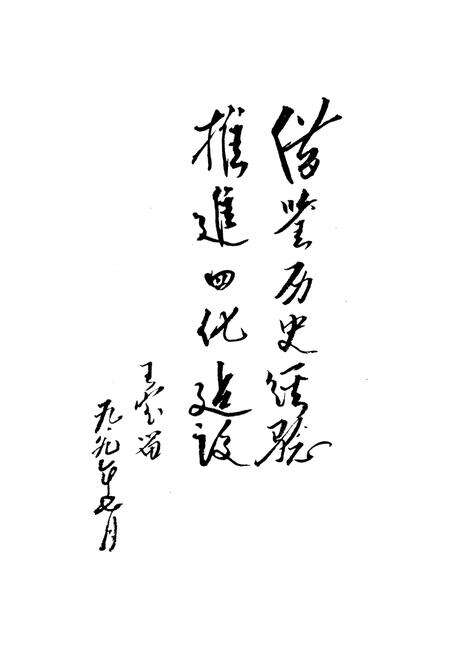 借鉴历史经验
推進四化建设
王
九九年七月